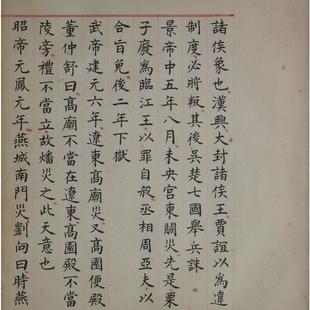 諸侯象也漢興大封諸侯王賈誼以為違
制度必將叛其後吳楚七國舉兵誅
景帝中五年八月未央宮東闕災先是栗
子廢為臨江王以罪自殺丞相周亞夫以
合旨免後二年下獄
武帝建元六年遼東高廟災又高園便殿
董仲舒曰高廟不當在遼東高園殿不當
陵旁禮不當立故燔災之此天意也
昭帝元鳳元年燕城南門災劉向曰時燕